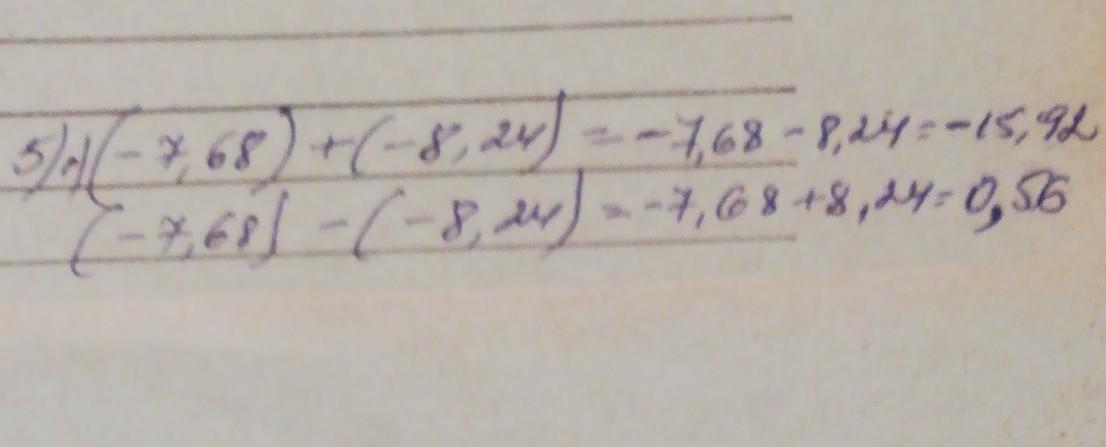 5) 1) (-7,68) + (-8,24) = -7,68 - 8,24 = -15,92
(-7,68) - (-8,24) = -7,68 + 8,24 = 0,56